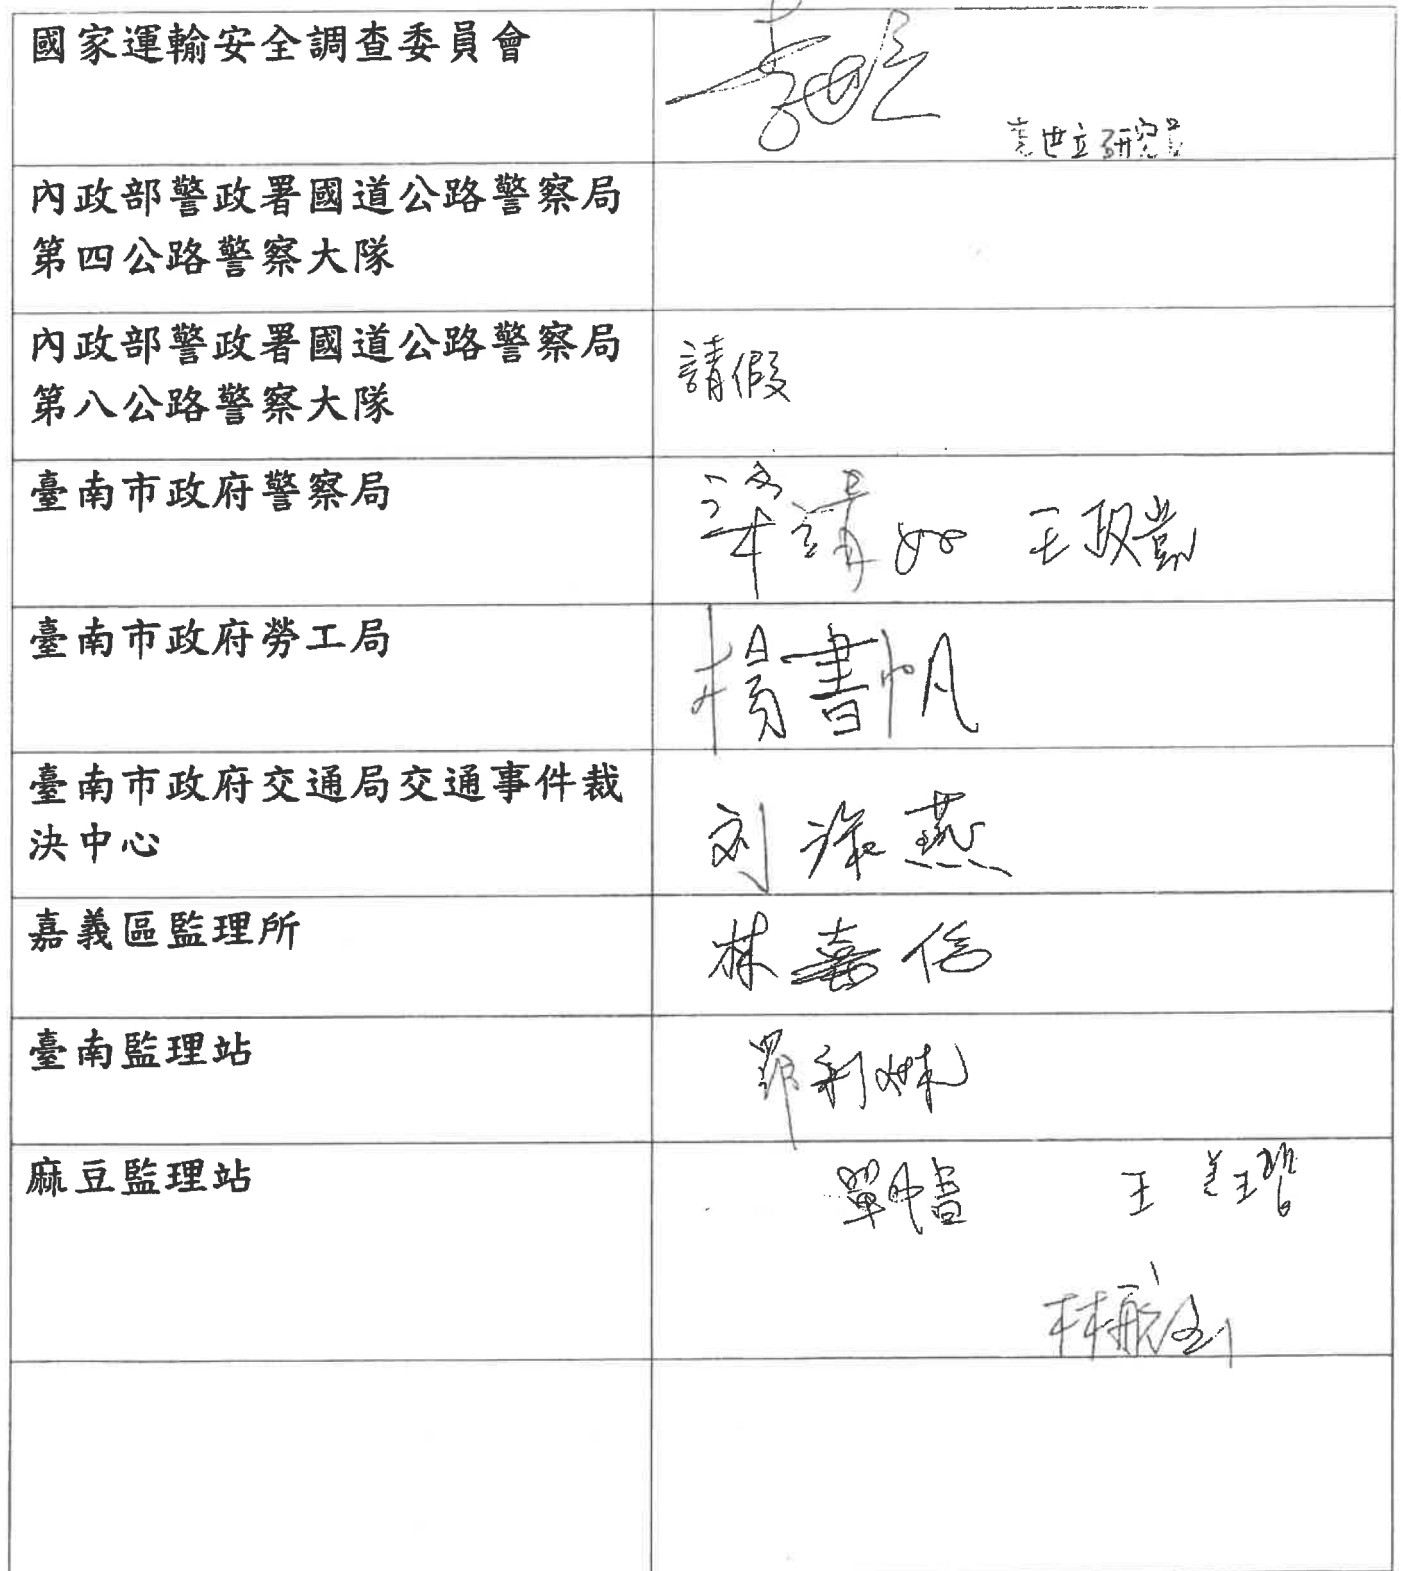 國家運輸安全調查委員會
世立研究員
內政部警政署國道公路警察局
第四公路警察大隊
內政部警政署國道公路警察局
第八公路警察大隊
請假
臺南市政府警察局
王
臺南市政府勞工局
楊書帆
臺南市政府交通局交通事件裁
決中心
刘 燕
嘉義區監理所
林嘉信
臺南監理站
利姝
麻豆監理站
單
王
林